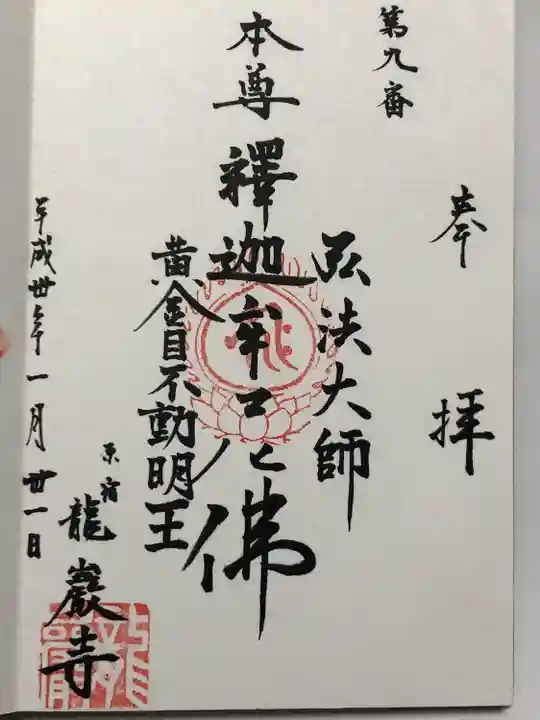 奉拝
第九番
弘法大師
本尊 釋迦牟尼佛
黄金目不動明王
平成卅年一月廿一日
原宿
龍巖寺